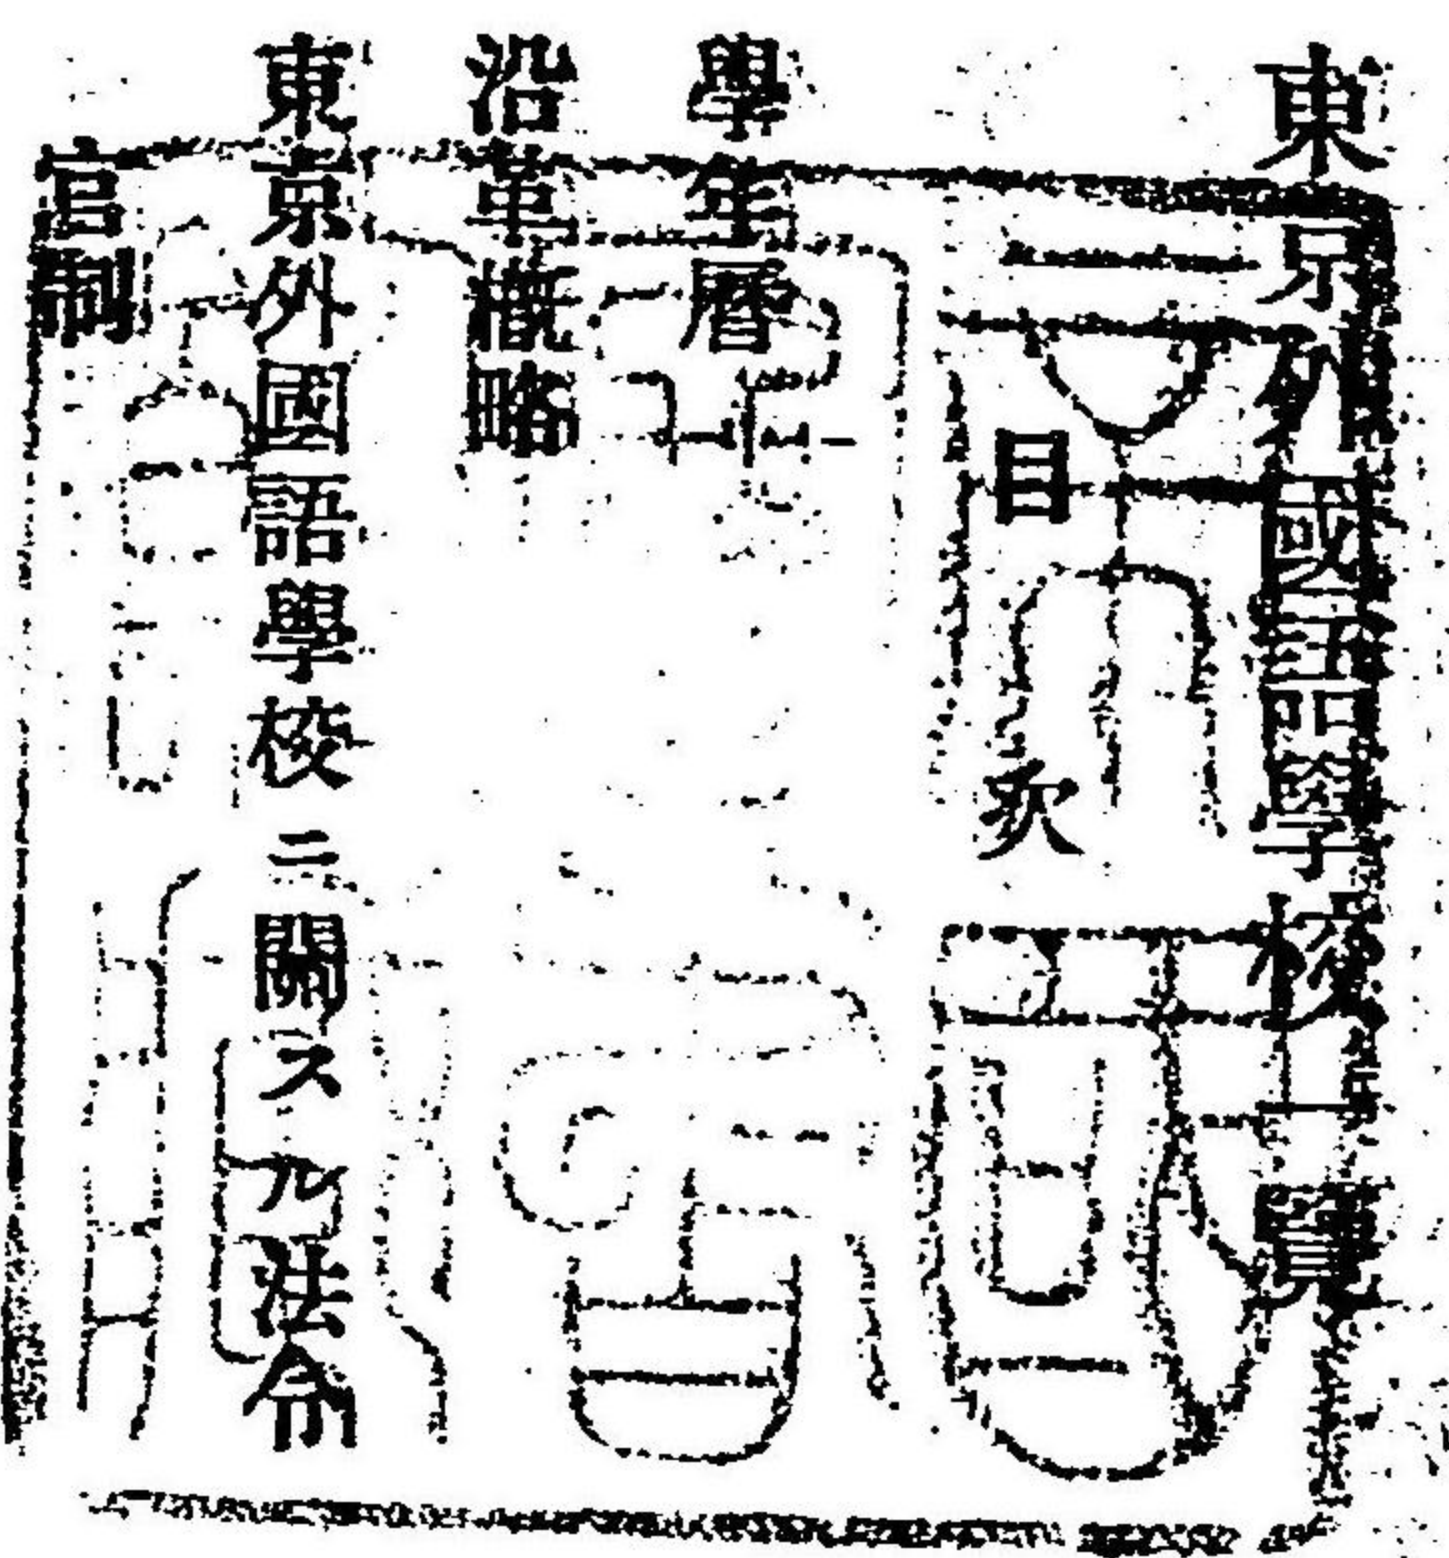 東京外國語學校一覽
目次
學年曆
沿革概略
東京外國語學校ニ關スル法令
官制